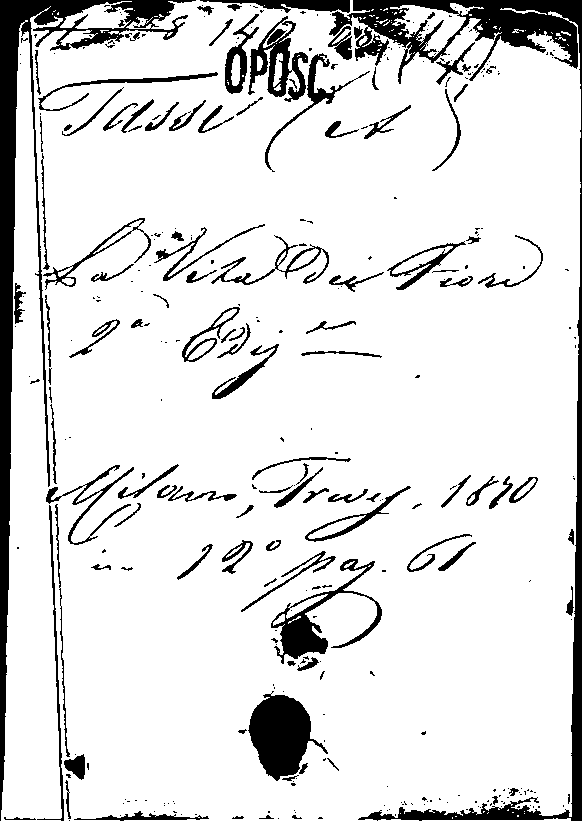 OPOSC.
Tasse (A)
La Vita Dei Fiori
2a Edize
Milano, Treves, 1870
in 12° pag. 61